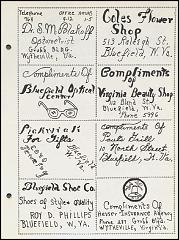 Telephone
Office Hours
9-12 1-5
Dr. S. M. Blakoff
Optometrist
Gross Bldg.
Wytheville, Va.
Coles Flower
Shop
513 Raleigh St.
Bluefield, W. Va.
Compliments Of
Bluefield Optical
Center
Compliments
of
Virginia Beauty Shop
Bland St.
Bluefield, W. Va.
Phone 5996
Pickwick's
For Gifts
Bluefield
W. Va.
Compliments
Of
Pauls Grill
10 North Street
Bluefield, W. Va.
Bluefield Shoe Co.
Shoes of Style & quality
ROY D. PHILLIPS
BLUEFIELD, W. VA.
Compliments Of
Insurance Agency
Phone
WYTHEVILLE, Virginia